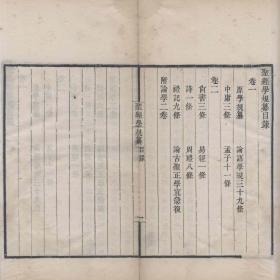 聖經學規纂目錄
卷一
原學規纂 論語學規三十九條
中庸三條 孟子十一條
卷二
尙書三條 易經一條
詩一條 周禮八條
禮記九條 論古聖正學宜急復
附論學二卷
聖經學規纂 目錄 一